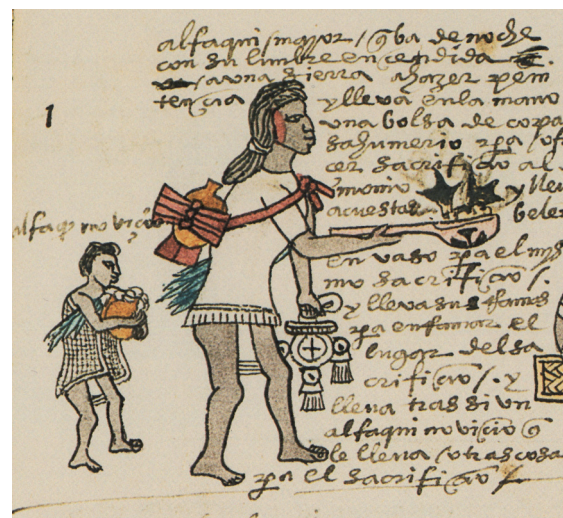 1
alfaqui mayor / q̃ ba de noche
con su lumbre encendida
a una sierra a hazer peni
tençia y lleva en la mano
una bolsa de copa
sahumerio pa / ofr
cer sacrifiçio al
y lleva
acuestas beles
en vaso pa el mis
mo sacrifiçio /.
y lleva sus
pa el
lugar del sa
crifiçio /. y
lleva tras si un
alfaqui noviçio q̃
le lleva / otras cosas
pa el sacrifiçio /
alfaqi noviçio